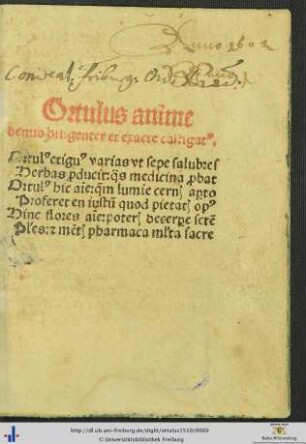 Anno 1602
Convent. Friburg. Ord.
Ortulus anime
denuo diligenter et exacte castigatꝰ.
Ortulꝰ exiguꝰ varias vt sepe salubres
Herbas ꝓducit: q̃s medicina ꝓbat
Ortulꝰ hic aie: q̃m lumie cernꝭ aꝑto
Proferet en iustũ quod pietatꝭ opꝰ
Hinc flores aie: poterꝭ decerpe
Ples: z mẽtꝭ pharmaca mlta sacre
http://dl.ub.uni-freiburg.de/diglit/ortulus1510/0009
© Universitätsbibliothek Freiburg
Baden-Württemberg